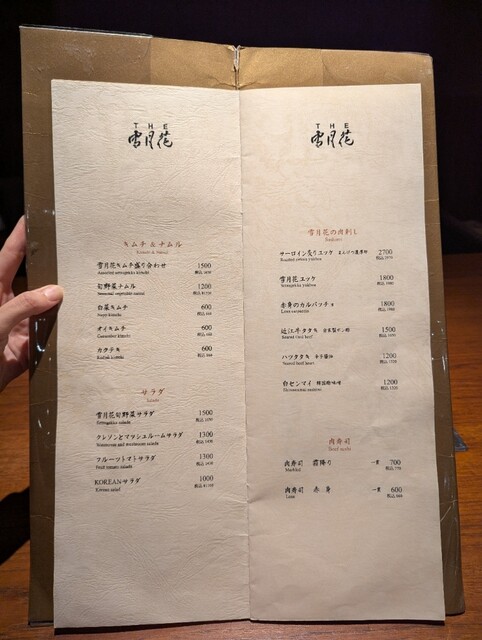 THE
雪月花
キムチ&ナムル
Kimchi & Namul
雪月花キムチ盛り合わせ 1500
Assorted setsugekka kimchi 税込1650
旬野菜ナムル 1200
Seasonal vegetable namul
白菜キムチ 600
Nappa kimchi 税込660
オイキムチ 600
Cucumber kimchi 税込660
カクテキ 600
Radish kimchi 税込660
サラダ
Salads
雪月花旬野菜サラダ 1500
Setsugekka salads 税込1650
クレソンとマッシュルームサラダ 1300
Watercress and mushroom salads 税込1430
フルーツトマトサラダ 1300
Fruit tomato salads 税込1430
KOREANサラダ 1000
Korean salad 税込1100
THE
雪月花
雪月花の肉刺し
サーロイン炙りユッケ 2700
税込2970
雪月花ユッケ 1800
Setsugekka yukhoe 税込1980
赤身のカルパッチョ 1800
Lean carpaccio 税込1980
近江牛タタキ 自家製ポン酢 1500
Seared Omi beef 税込1650
ハツタタキ 1200
Seared beef heart 税込1320
白センマイ 1200
税込1320
肉寿司
Beef sushi
肉寿司 霜降り 一貫 700
Marbled 税込770
肉寿司 赤身 一貫 600
Lean 税込660